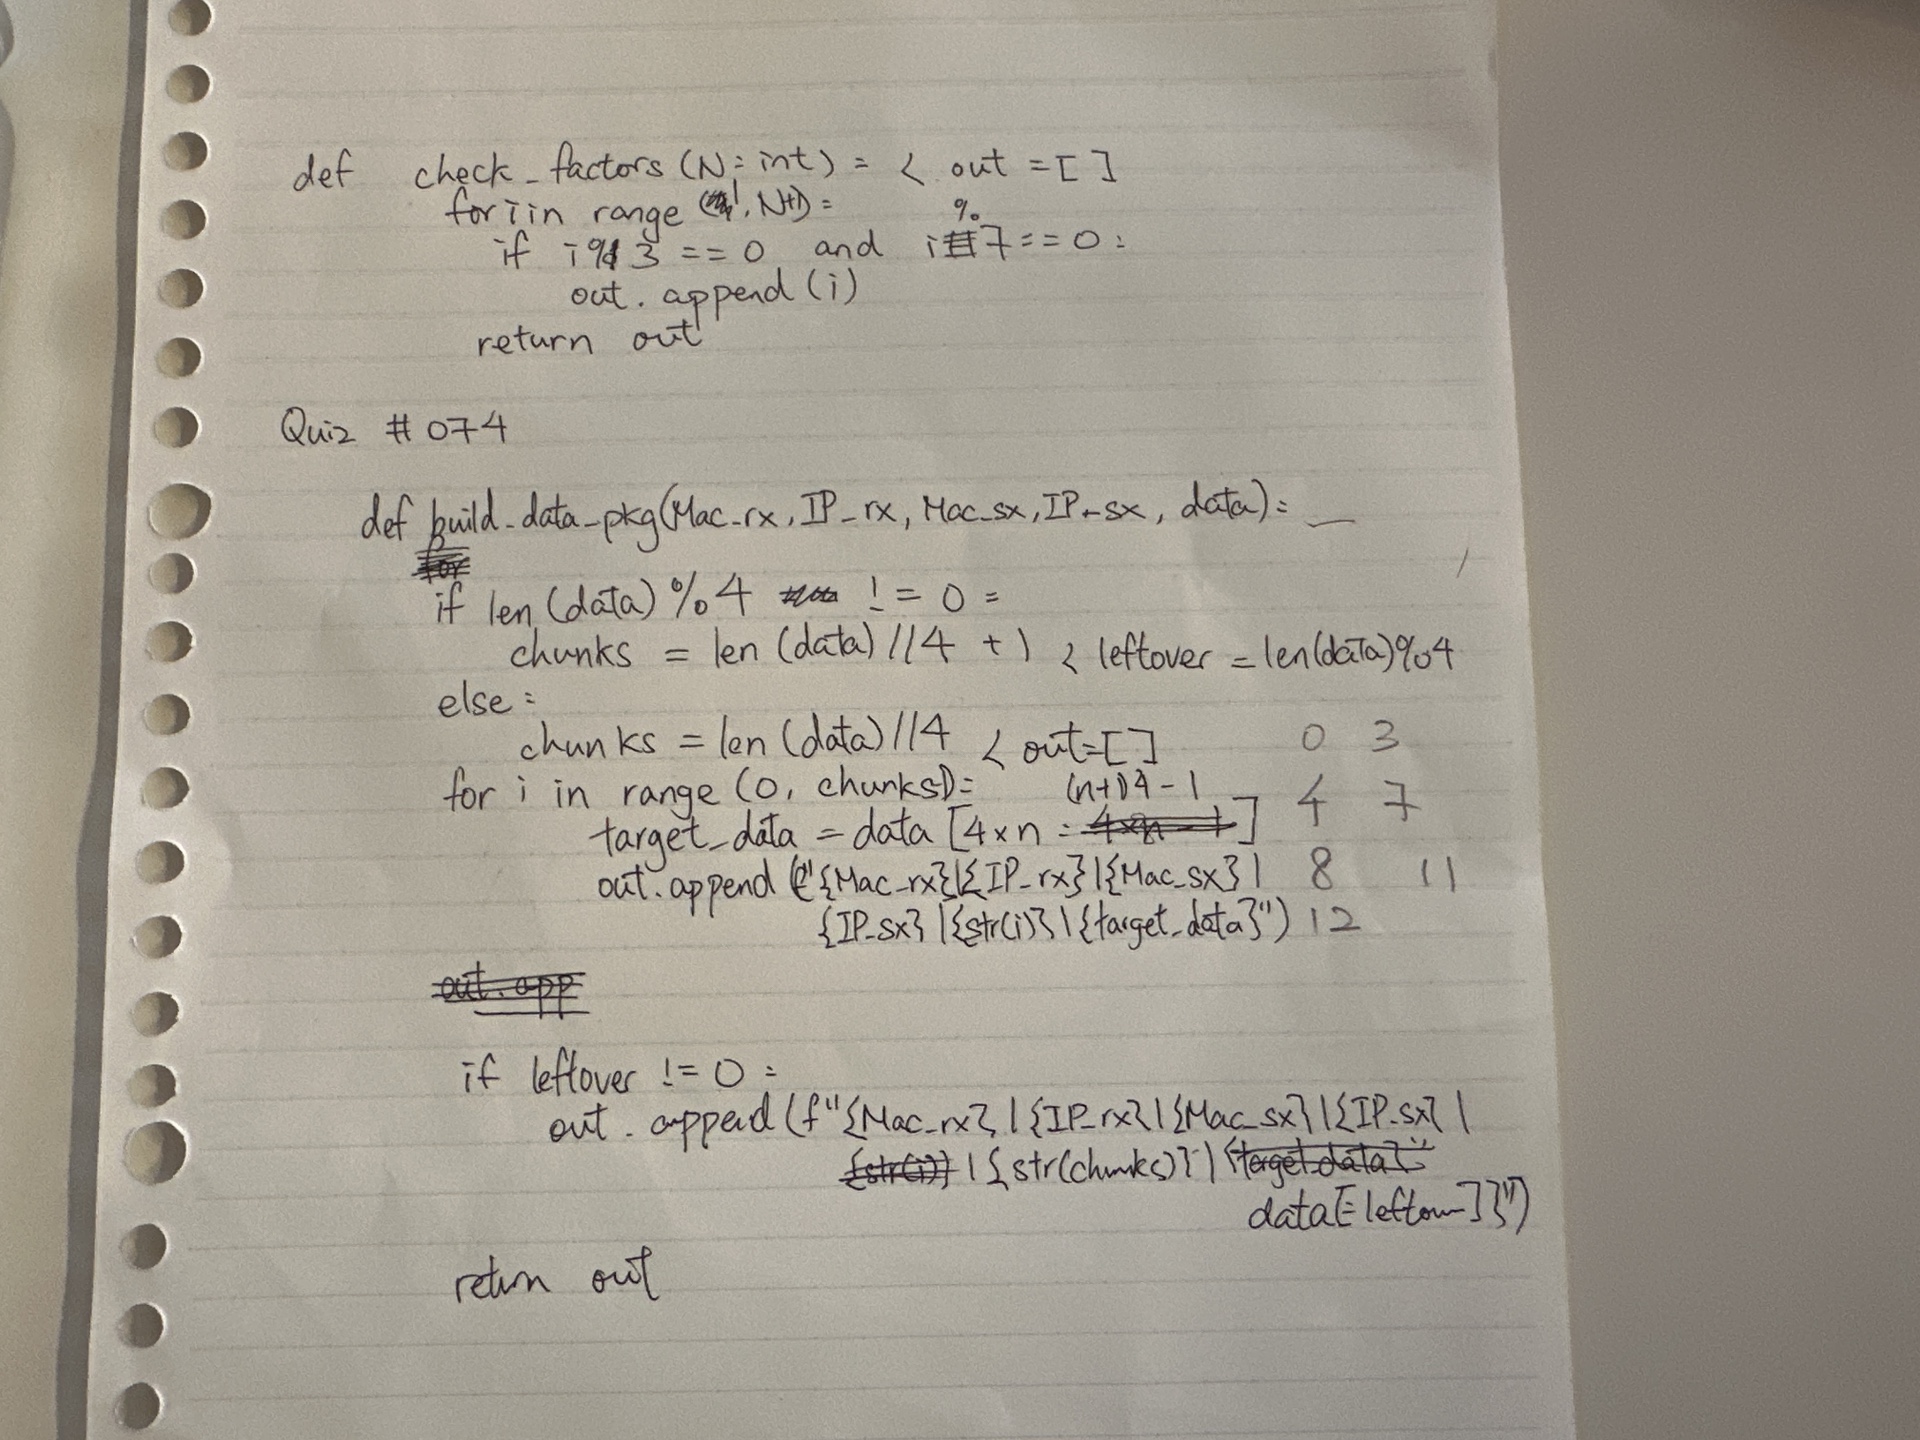 def check_factors (N: int) : < out = []
for i in range (1, N+1):
if i % 3 == 0 and i % 7 == 0 :
out. append (i)
return out
Quiz # 074
def build_data_pkg(Mac_rx, IP_rx, Mac_sx, IP_sx, data):
if len (data) % 4 != 0 :
chunks = len (data) // 4 + 1 < leftover = len(data)%4
else :
chunks = len (data) // 4 < out=[] 0 3
for i in range (0, chunks): (n+1)4-1 4 7
target_data = data [4xn : ]
out.append (f"{Mac_rx}|{IP_rx}|{Mac_sx}| 8 11
{IP_sx}|{str(i)}|{target_data}") 12
out.app
if leftover != 0 :
out. append (f"{Mac_rx}|{IP_rx}|{Mac_sx}|{IP_sx}|
{str(i)} | {str(chunks)}| {target_data}"
data[:leftover]}")
return out